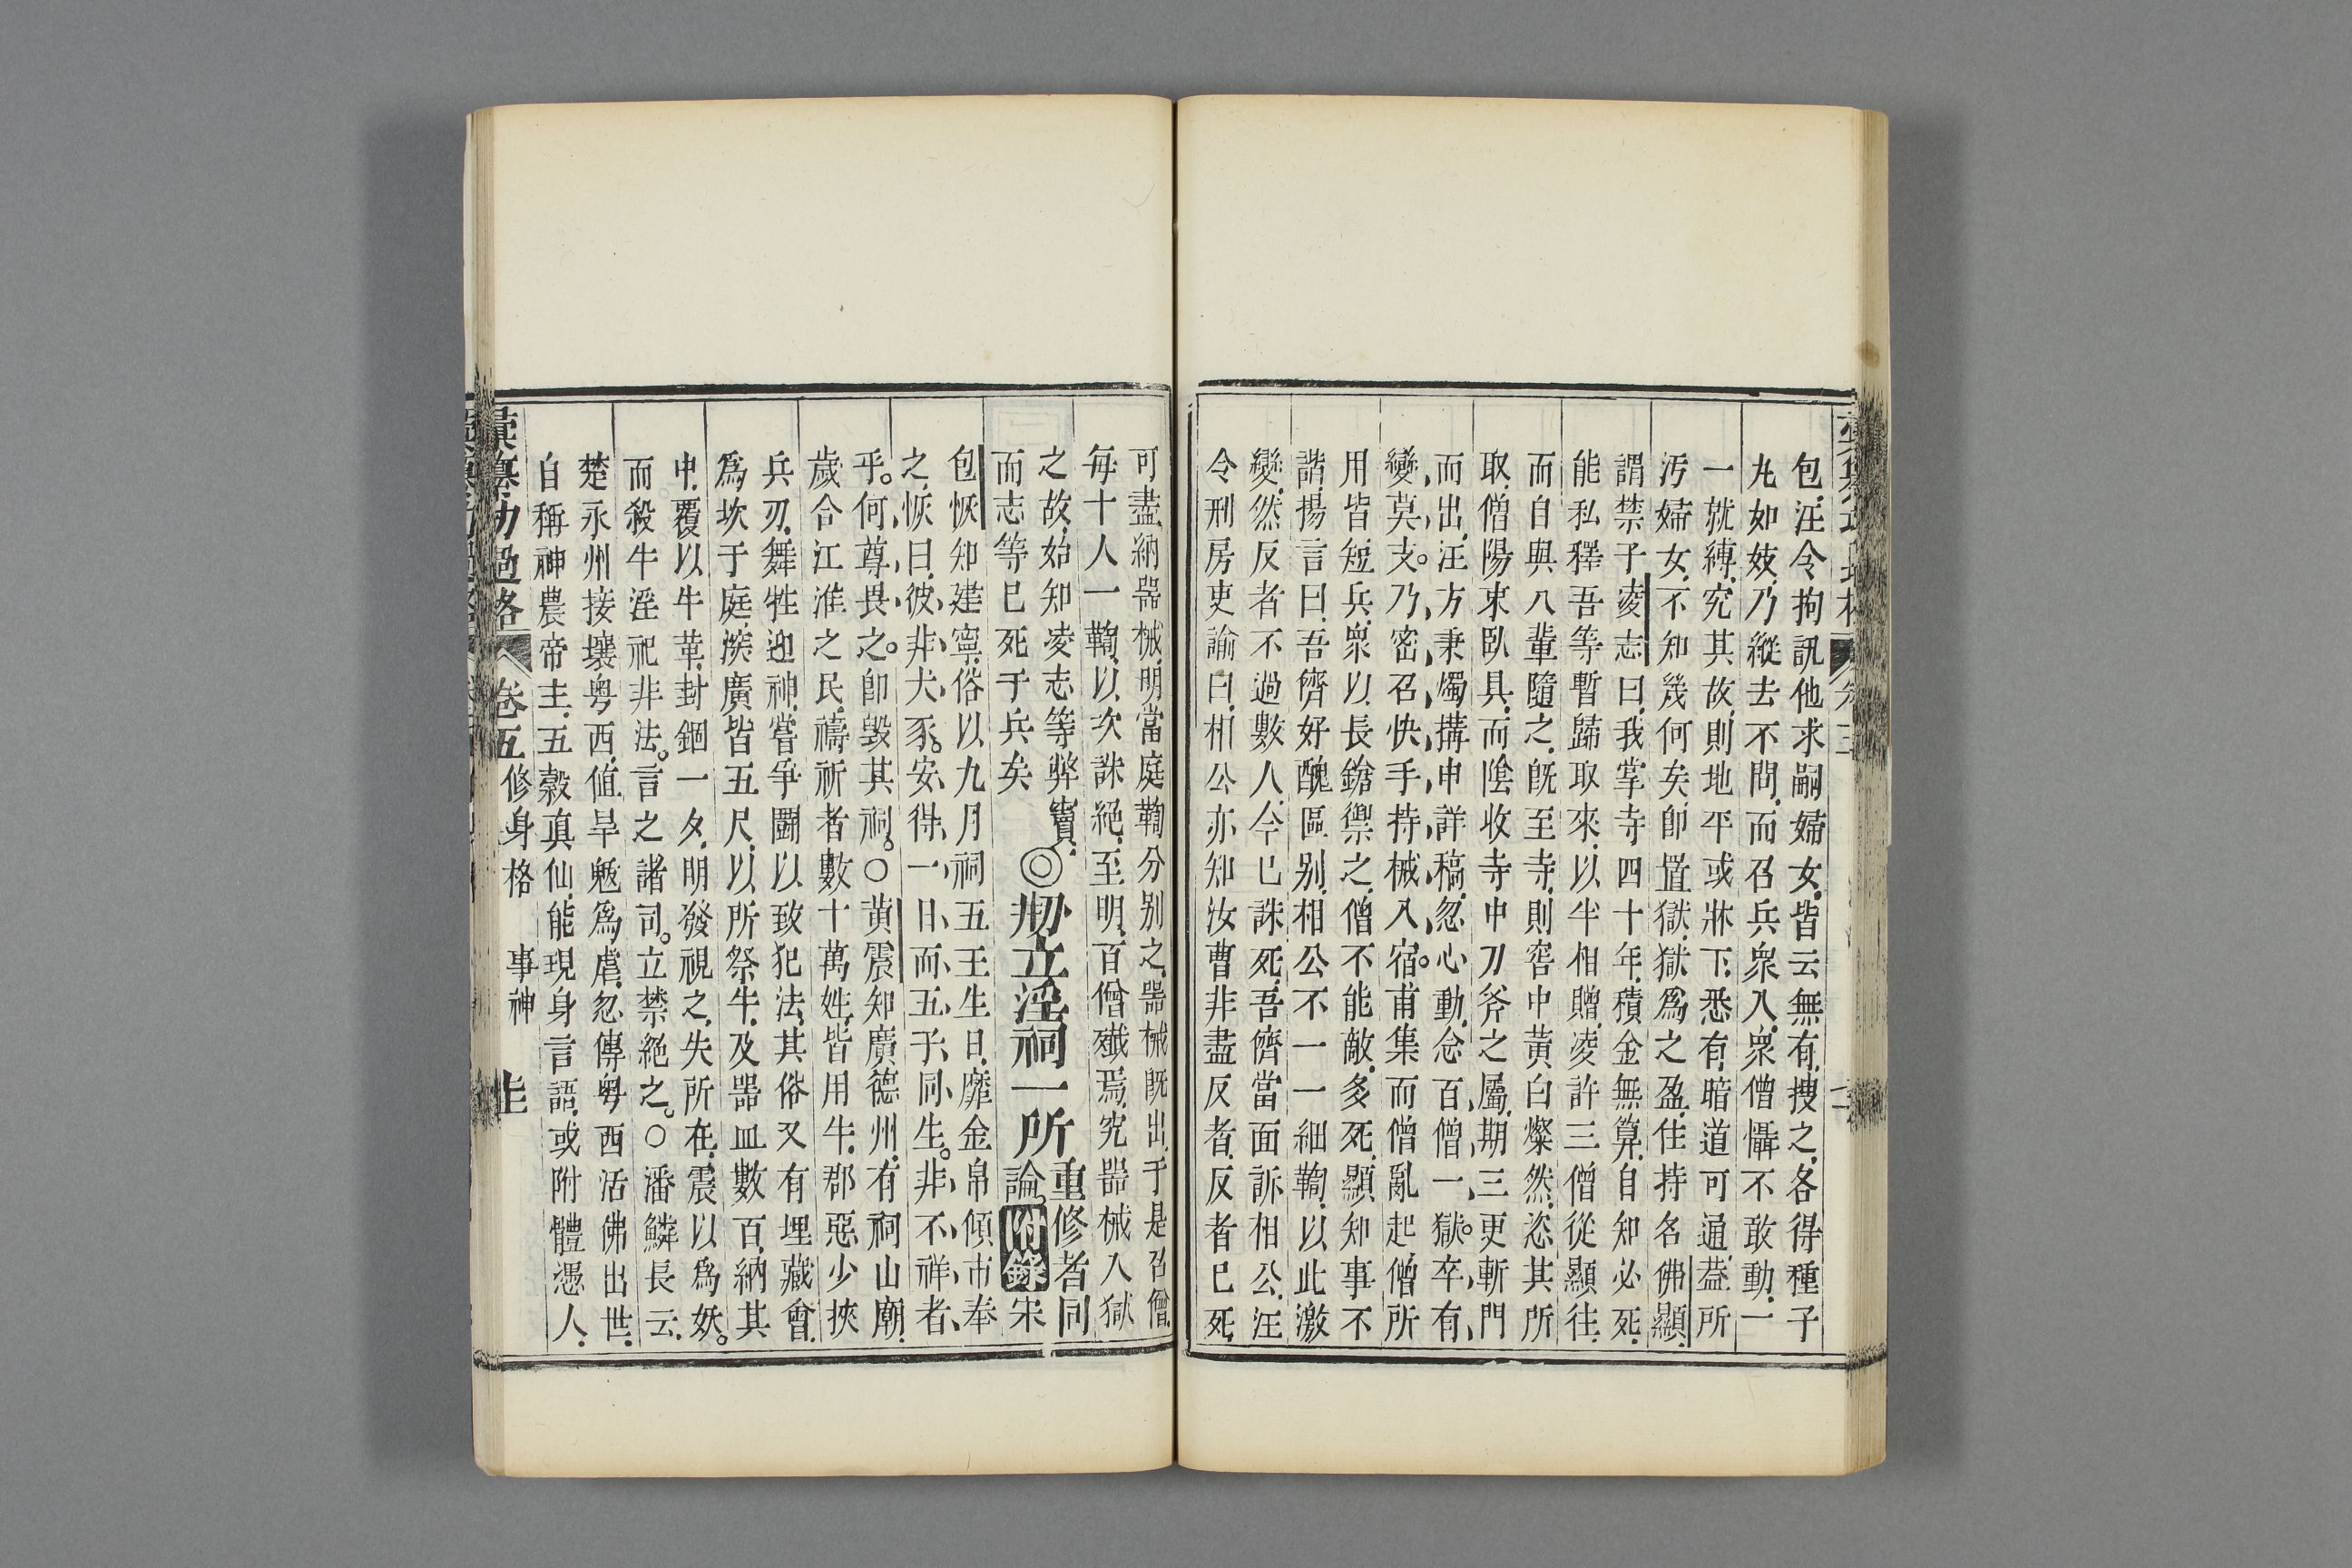 包汪令拘訊他求嗣婦女皆云無有搜之各得種子
丸如妓乃縱去不問而召兵衆入衆僧懾不敢動一
一就縛究其故則地平或牀下悉有暗道可通葢所
汚婦女不知幾何矣卽置獄獄爲之盈住持名佛顯
謂禁子凌志曰我掌寺四十年積金無算自知必死
能私釋吾等暫歸取來以半相贈凌許三僧從顯往
而自與八輩隨之旣至寺則窖中黃白燦然恣其所
取僧陽束臥具而陰收寺中刀斧之屬期三更斬門
而出汪方秉燭搆申詳稿忽心動念百僧一獄卒有
變莫支乃密召快手持械入宿甫集而僧亂起僧所
用皆短兵衆以長鎗禦之僧不能敵多死顯知事不
諧揚言曰吾儕好醜區别相公不一一細鞫以此激
變然反者不過數人今已誅死吾儕當面訴相公汪
令刑房吏諭曰相公亦知汝曹非盡反者反者已死
可盡納器械明當庭鞫分别之器械旣出于是召僧
每十人一鞫以次誅絕至明百僧殱焉究器械入獄
之故始知凌志等弊竇◎刱立淫祠一所重修者同
而志等已死于兵矣論附錄宋
包恢知建寧俗以九月祠五王生日靡金帛傾市奉
之恢曰彼非犬豕安得一日而五子同生非不祥者
乎何尊畏之卽毀其祠○黃震知廣德州有祠山廟
歲合江淮之民禱祈者數十萬姓皆用牛郡惡少挾
兵刃舞牲迎神嘗爭鬭以致犯法其俗又有埋藏會
爲坎于庭深廣皆五尺以所祭牛及器皿數百納其
中覆以牛革封錮一夕明發視之失所在震以爲妖
而殺牛淫祀非法言之諸司立禁絕之○潘鱗長云
楚永州接壤粤西值旱魃爲虐忽傳粤西活佛出世
自稱神農帝主五穀眞仙能現身言語或附體憑人
彙纂功過格 卷五 修身格 事神